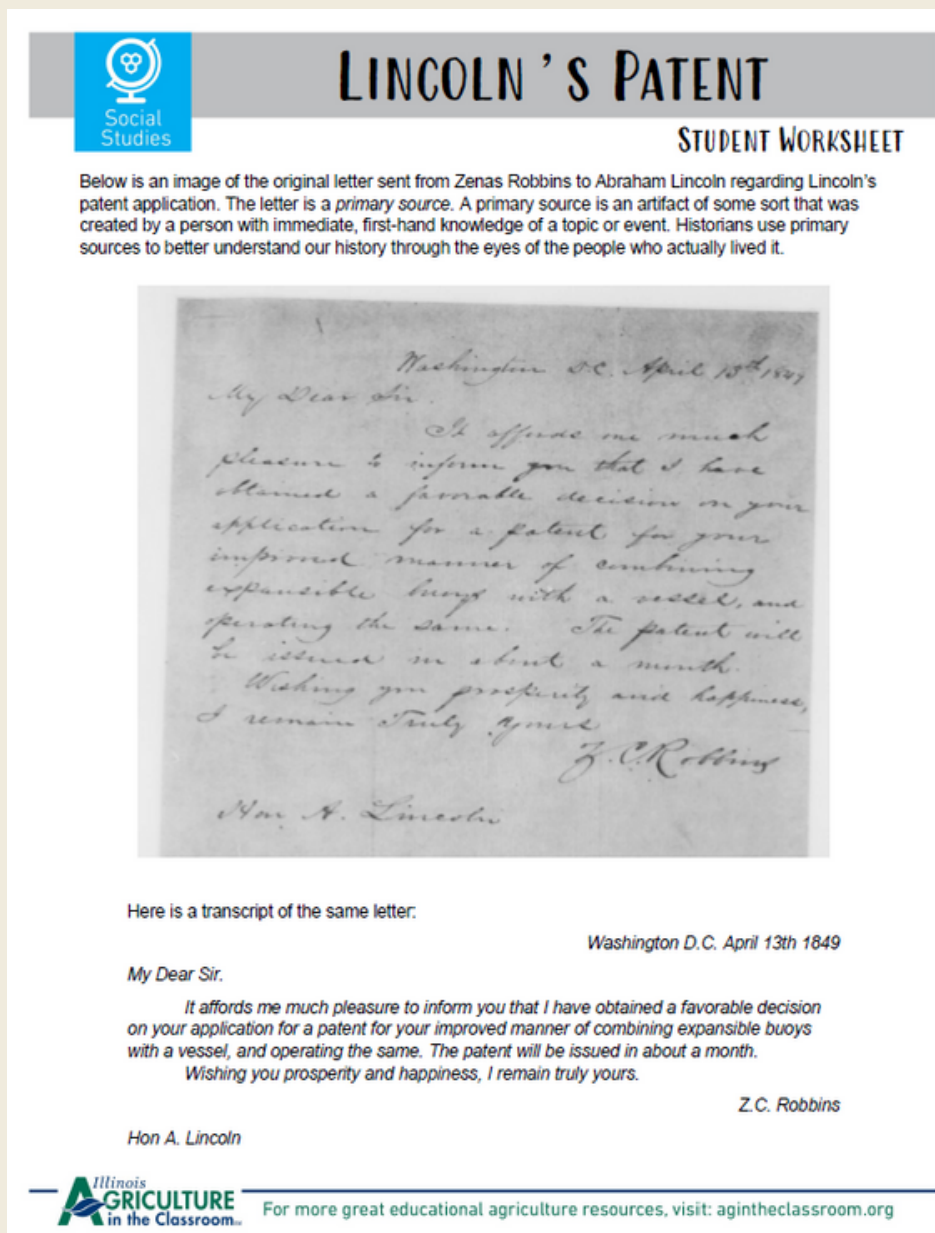 Social
Studies
LINCOLN'S PATENT
STUDENT WORKSHEET
Below is an image of the original letter sent from Zenas Robbins to Abraham Lincoln regarding Lincoln's
patent application. The letter is a primary source. A primary source is an artifact of some sort that was
created by a person with immediate, first-hand knowledge of a topic or event. Historians use primary
sources to better understand our history through the eyes of the people who actually lived it.
Washington D.C. April 13th 1849
My Dear Sir.
It affords me much
pleasure to inform you that I have
obtained a favorable decision on your
application for a patent for your
improved manner of combining
expansible buoys with a vessel, and
operating the same. The patent will
be issued in about a month.
Wishing you prosperity and happiness,
I remain Truly yours
Z. C. Robbins
Hon A. Lincoln
Here is a transcript of the same letter:
Washington D.C. April 13th 1849
My Dear Sir.
It affords me much pleasure to inform you that I have obtained a favorable decision
on your application for a patent for your improved manner of combining expansible buoys
with a vessel, and operating the same. The patent will be issued in about a month.
Wishing you prosperity and happiness, I remain truly yours.
Z.C. Robbins
Hon A. Lincoln
Illinois
AGRICULTURE
in the Classroom
For more great educational agriculture resources, visit: agintheclassroom.org